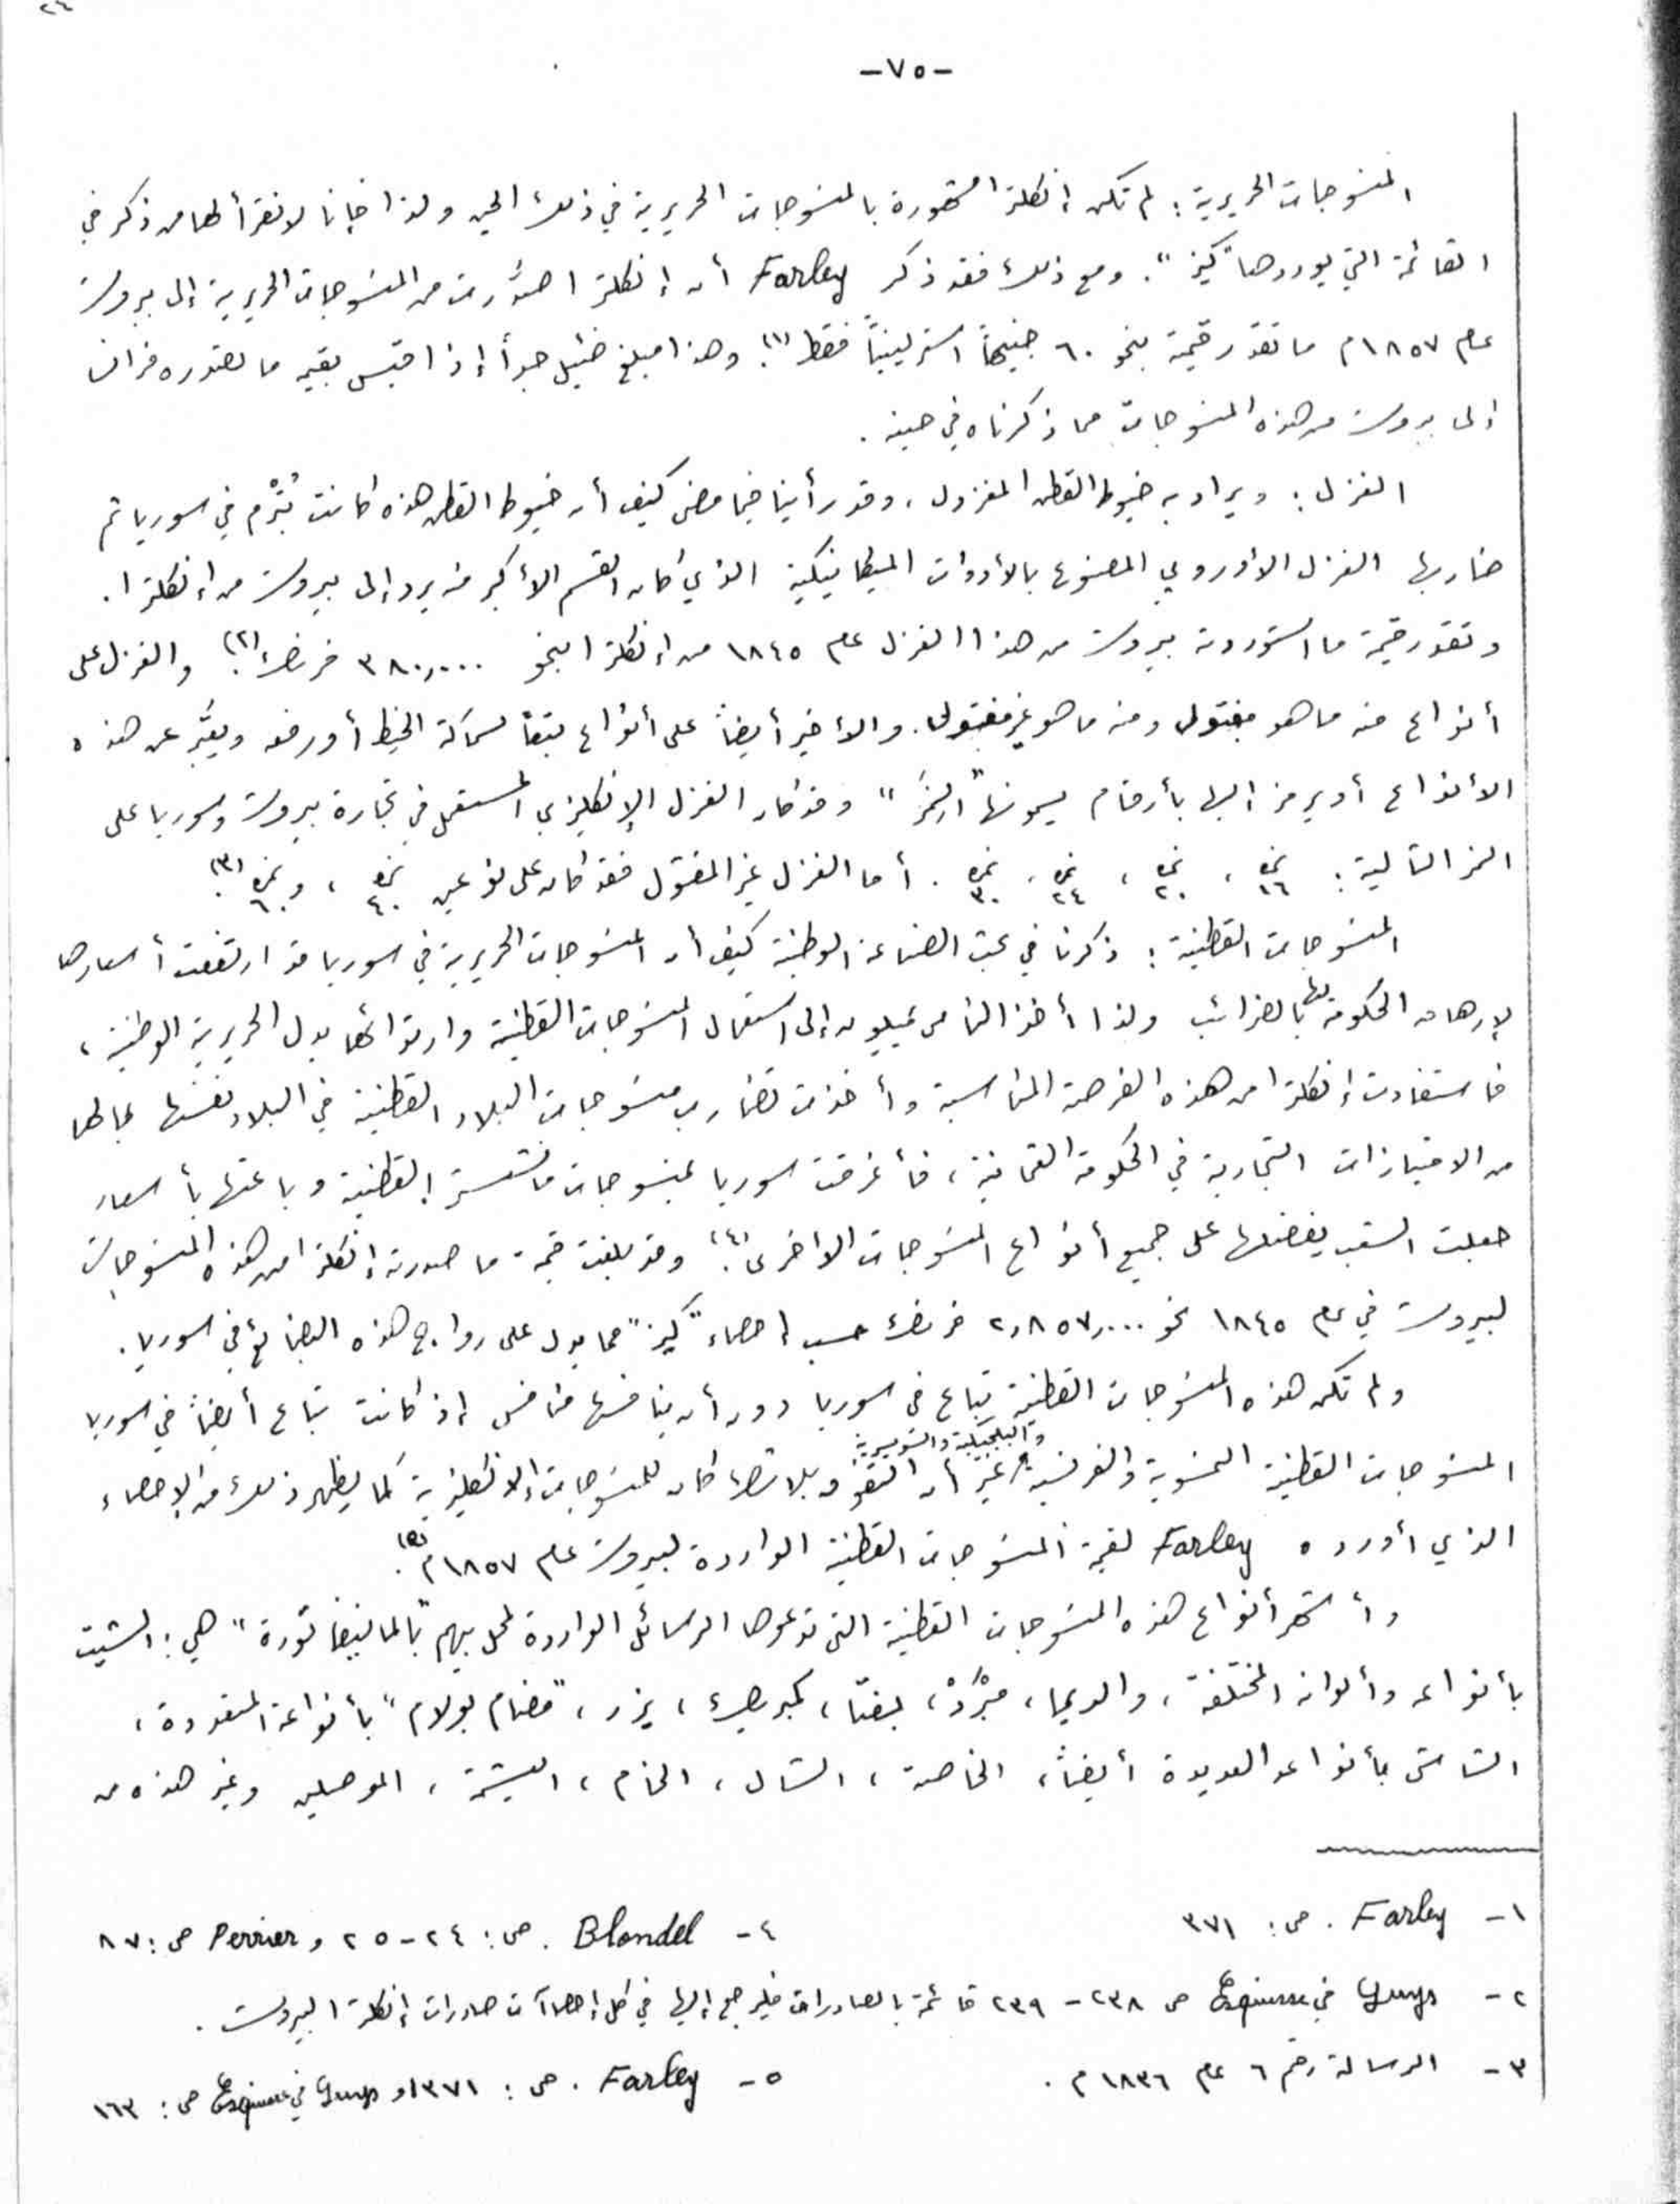 -٧٥-
المنسوجات الحريرية : لم تكن إنكلترا مشهورة بالمنسوجات الحريرية في ذلك الحين ولذا فإنا لا نقرأ لها من ذكر في
القائمة التي يوردها "كيز". ومع ذلك فقد ذكر Farley أن إنكلترا صدَّرت من المنسوجات الحريرية إلى بيروت
عام ١٨٥٧م ما تقدر قيمته بنحو ٦٠ جنيهاً استرلينياً فقط (١). وهذا مبلغ ضئيل جداً إذا قيس بقيمة ما تصدره فرانسا
إلى بيروت من هذه المنسوجات مما ذكرناه في حينه .
الغزل : ويراد به خيوط القطن المغزول ، وقد رأينا فيما مضى كيف أن خيوط القطن هذه كانت تُبْرَم في سوريا ثم
ضاربها الغزل الأوروبي المصنوع بالأدوات الميكانيكية الذي كان القسم الأكبر منه يرد إلى بيروت من إنكلترا .
وتقدر قيمة ما استوردته بيروت من هذا الغزل عام ١٨٤٥ من إنكلترا بنحو ٣٨٠,٠٠٠ فرنك (٢). والغزل على
أنواع منه ما هو مفتول ومنه ما هو غير مفتول. والأخير أيضاً على أنواع تبعاً لسماكة الخيط أو رفعه ويعبَّر عن هذه
الأنواع أو يرمز إليها بأرقام يسمونها "النِمَر" وقد كان الغزل الإنكليزي المستعمل في تجارة بيروت وسوريا على
النمر التالية : نمرة ١٦ ، نمرة ٢٠ ، نمرة ٢٤ ، نمرة ٣٠ . أما الغزل غير المفتول فقد كان على نوعين نمرة ٤٠ ، ونمرة ٦٠ (٣).
المنسوجات القطنية : ذكرنا في بحث الصناعة الوطنية كيف أن المنسوجات الحريرية في سوريا قد ارتفعت أسعارها
لإرهاق الحكومة لها بالضرائب ولذا أخذ الناس يميلون إلى استعمال المنسوجات القطنية وارتدائها بدل الحريرية الوطنية ،
فاستفادت إنكلترا من هذه الفرصة المناسبة وأخذت تضارب منسوجات البلاد القطنية في البلاد نفسها بما لها
من الامتيازات التجارية في الحكومة العثمانية ، فأغرقت سوريا بمنسوجات مانشستر القطنية وباعتها بأسعار
جعلت الشعب يفضلها على جميع أنواع المنسوجات الأخرى (٤). وقد بلغت قيمة ما صدرته إنكلترا من هذه المنسوجات
لبيروت في عام ١٨٤٥ نحو ٢,٨٥٧,٠٠٠ فرنك حسب إحصاء "كيز" مما يدل على رواج هذه البضائع في سوريا .
ولم تكن هذه المنسوجات القطنية تباع في سوريا دون أن ينافسها منافس إذ كانت تباع أيضاً في سوريا
المنسوجات القطنية النمسوية والفرنسية والبلجيكية والسويسرية غير أن التفوق بلا شك كان للمنسوجات الإنكليزية كما يظهر ذلك من الإحصاء
الذي أورده Farley لقيمة المنسوجات القطنية الواردة لبيروت عام ١٨٥٧م (٥).
وأشهر أنواع هذه المنسوجات القطنية التي تدعوها الرسائل الواردة لمحل بيهم "بالمانيفاتورة" هي : الشيت
بأنواعه وألوانه المختلفة ، والديما ، مبْرَدْ ، بفتا ، كمبريك ، يزر ، "مضام بولام" بأنواعه المتعددة ،
الشاش بأنواعه العديدة أيضاً ، الخاصة ، الشال ، الخام ، اليشمة ، الموصلين وغير هذه من
١- Farley . ص : ٣٧١
٤- Blondel . ص : ٢٤-٢٥ و Perrier ص : ٨٧
٢- Guys في Esquisse ص ٢٣٨-٢٣٩ قائمة بالصادرات فليرجع إليها في كل إحصاآت صادرات إنكلترا لبيروت .
٣- الرسالة رقم ٦ عام ١٨٣٦م .
٥- Farley . ص : ٣٧١ و Guys في Esquisse ص : ١٦٣